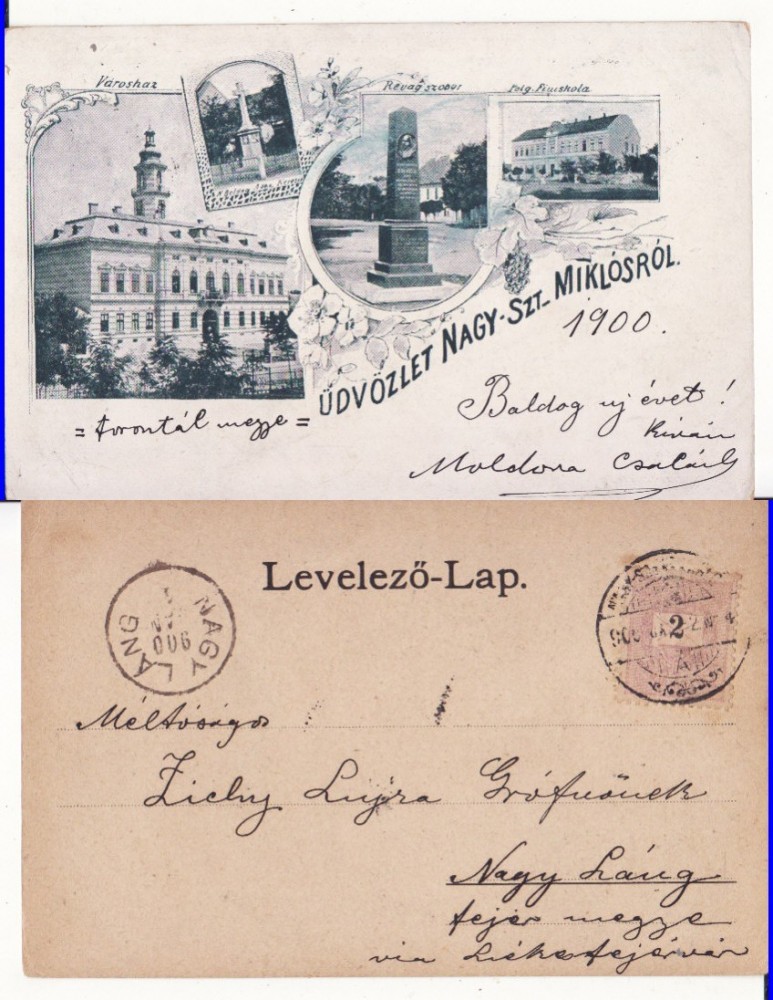 Városház
Révay szobor
Polg. Fiuiskola
ÜDVÖZLET NAGY-SZT. MIKLÓSRÓL.
1900.
= Torontál megye =
Boldog uj évet!
kíván
Moldova Család
Levelező-Lap.
NAGY LÁNG
900
2
Méltóságos
Zichy Lujza Grófnőnek
Nagy Láng
fejér megye
via Székesfejérvár